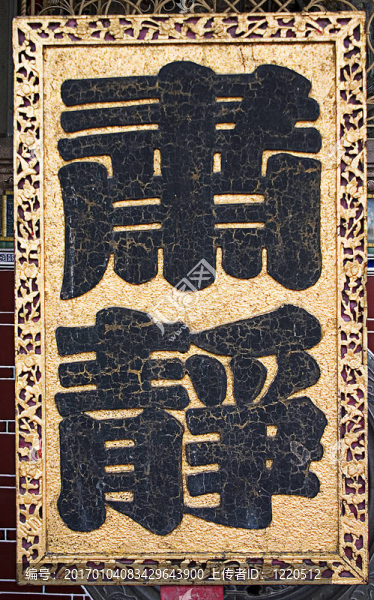 肅
靜
编号：20170104083429643900 上传者ID：1220512